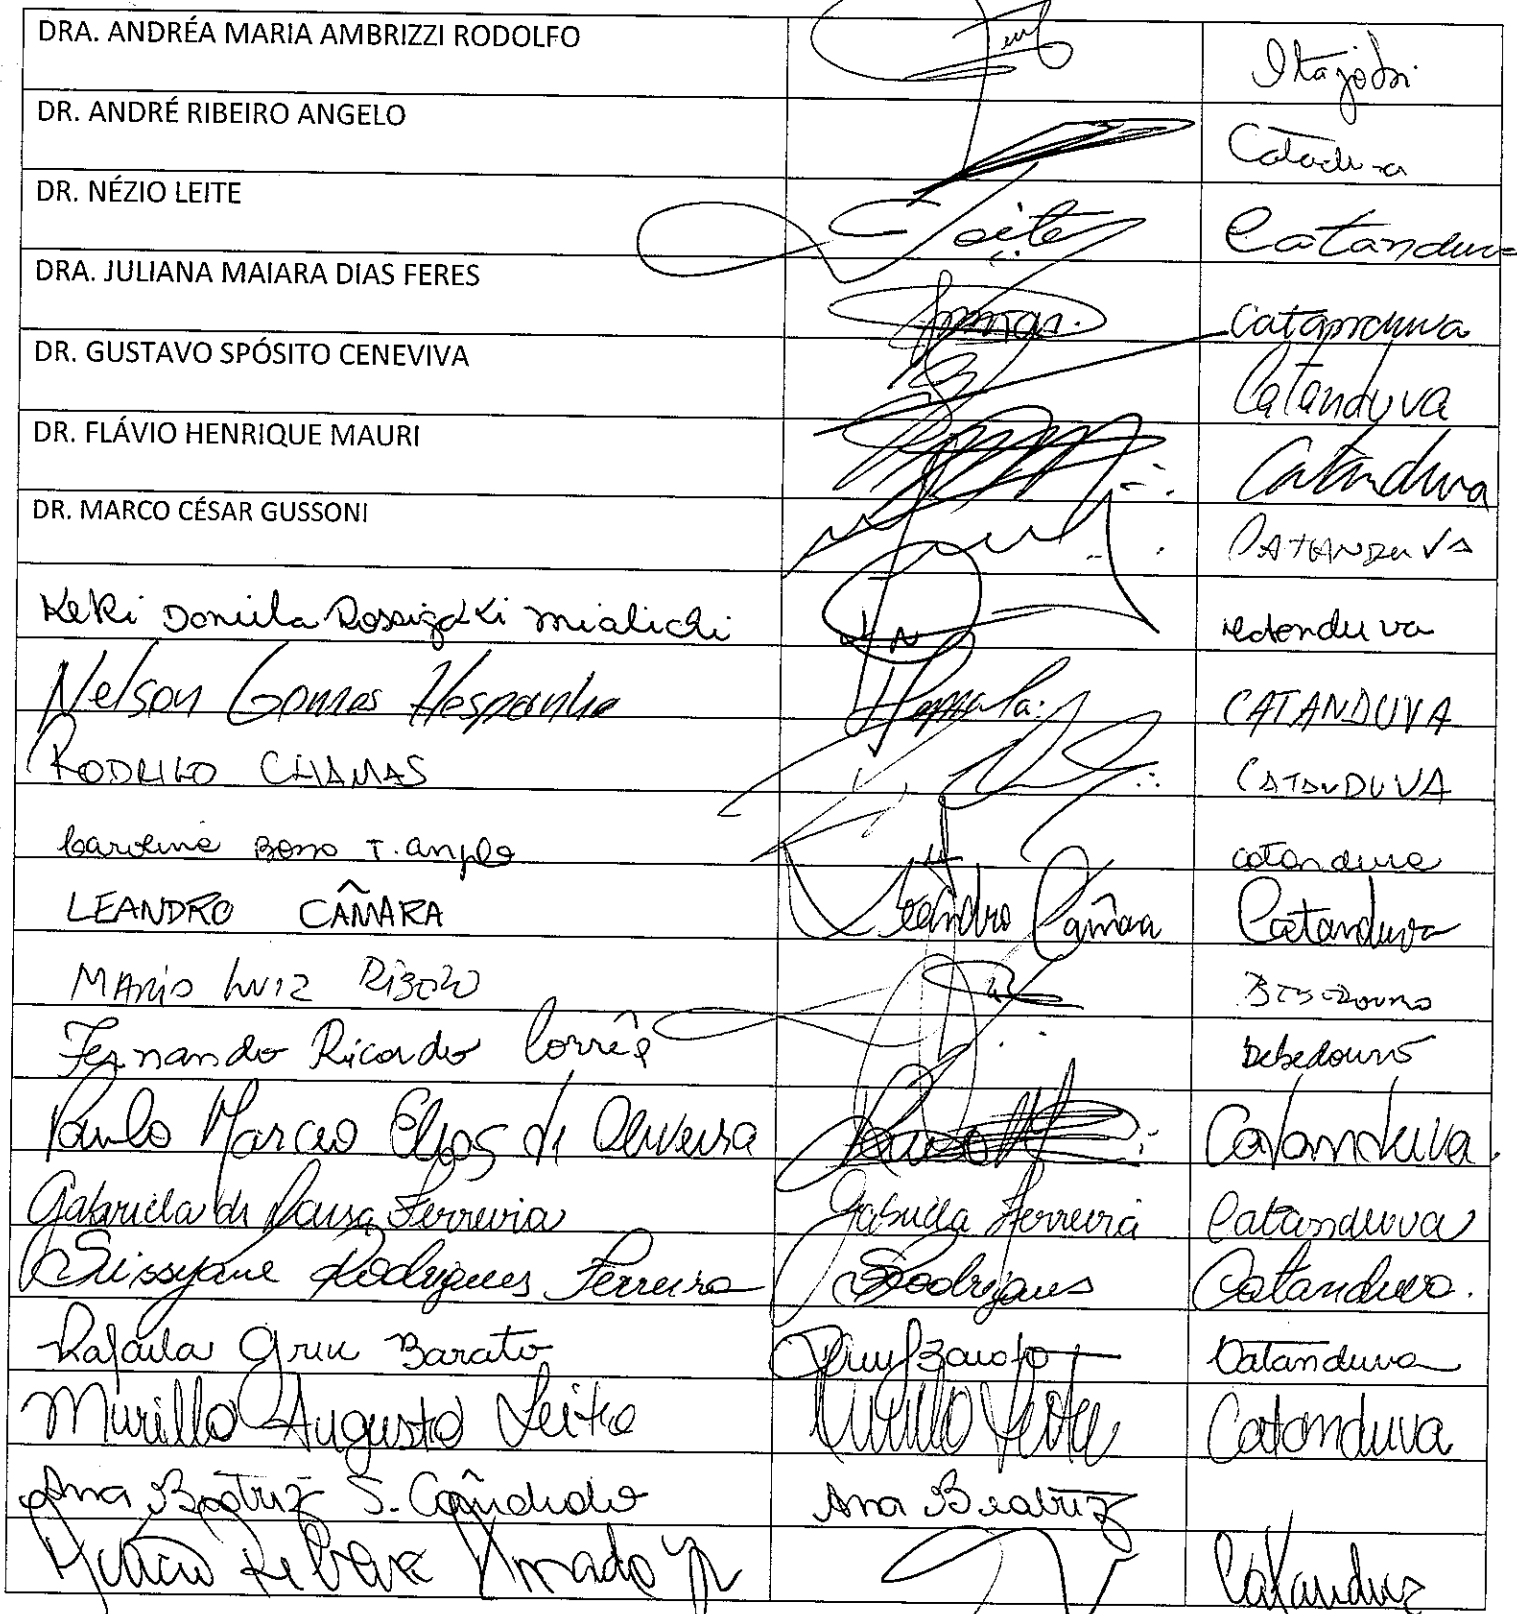 DRA. ANDRÉA MARIA AMBRIZZI RODOLFO Itajobi
DR. ANDRÉ RIBEIRO ANGELO
DR. NÉZIO LEITE Leite Catanduva
DRA. JULIANA MAIARA DIAS FERES Catanduva
DR. GUSTAVO SPÓSITO CENEVIVA Catanduva
DR. FLÁVIO HENRIQUE MAURI Catanduva
DR. MARCO CÉSAR GUSSONI CATANDUVA
Daniela catanduva
Nelson Gomes Hespanha CATANDUVA
RODRIGO CHAMAS CATANDUVA
T. catanduva
LEANDRO CÂMARA Leandro Câmara Catanduva
MARIO LUIZ
Fernando Ricardo Corrêa Bebedouro
Paulo Marcio Elias de Oliveira Catanduva
Gabriela de Souza Ferreira Gabriela Ferreira Catanduva
Rodrigues Ferreira Rodrigues Catanduva.
Rafaela Barato Catanduva
Murillo Augusto Leite Murillo Leite Catanduva
Ana Beatriz S. Cândido Ana Beatriz
Catanduva